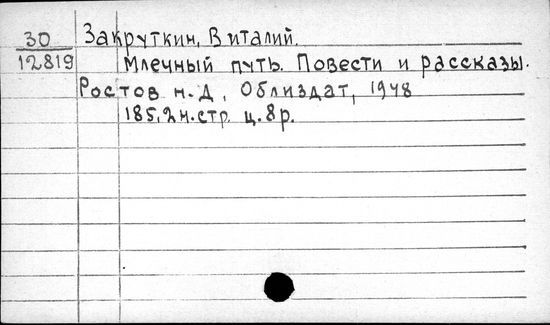 30 Закруткин, Виталий.
12819 Млечный путь. Повести и рассказы.
Ростов н. Д, Облиздат, 1948
185,2н.стр. ц.8р.